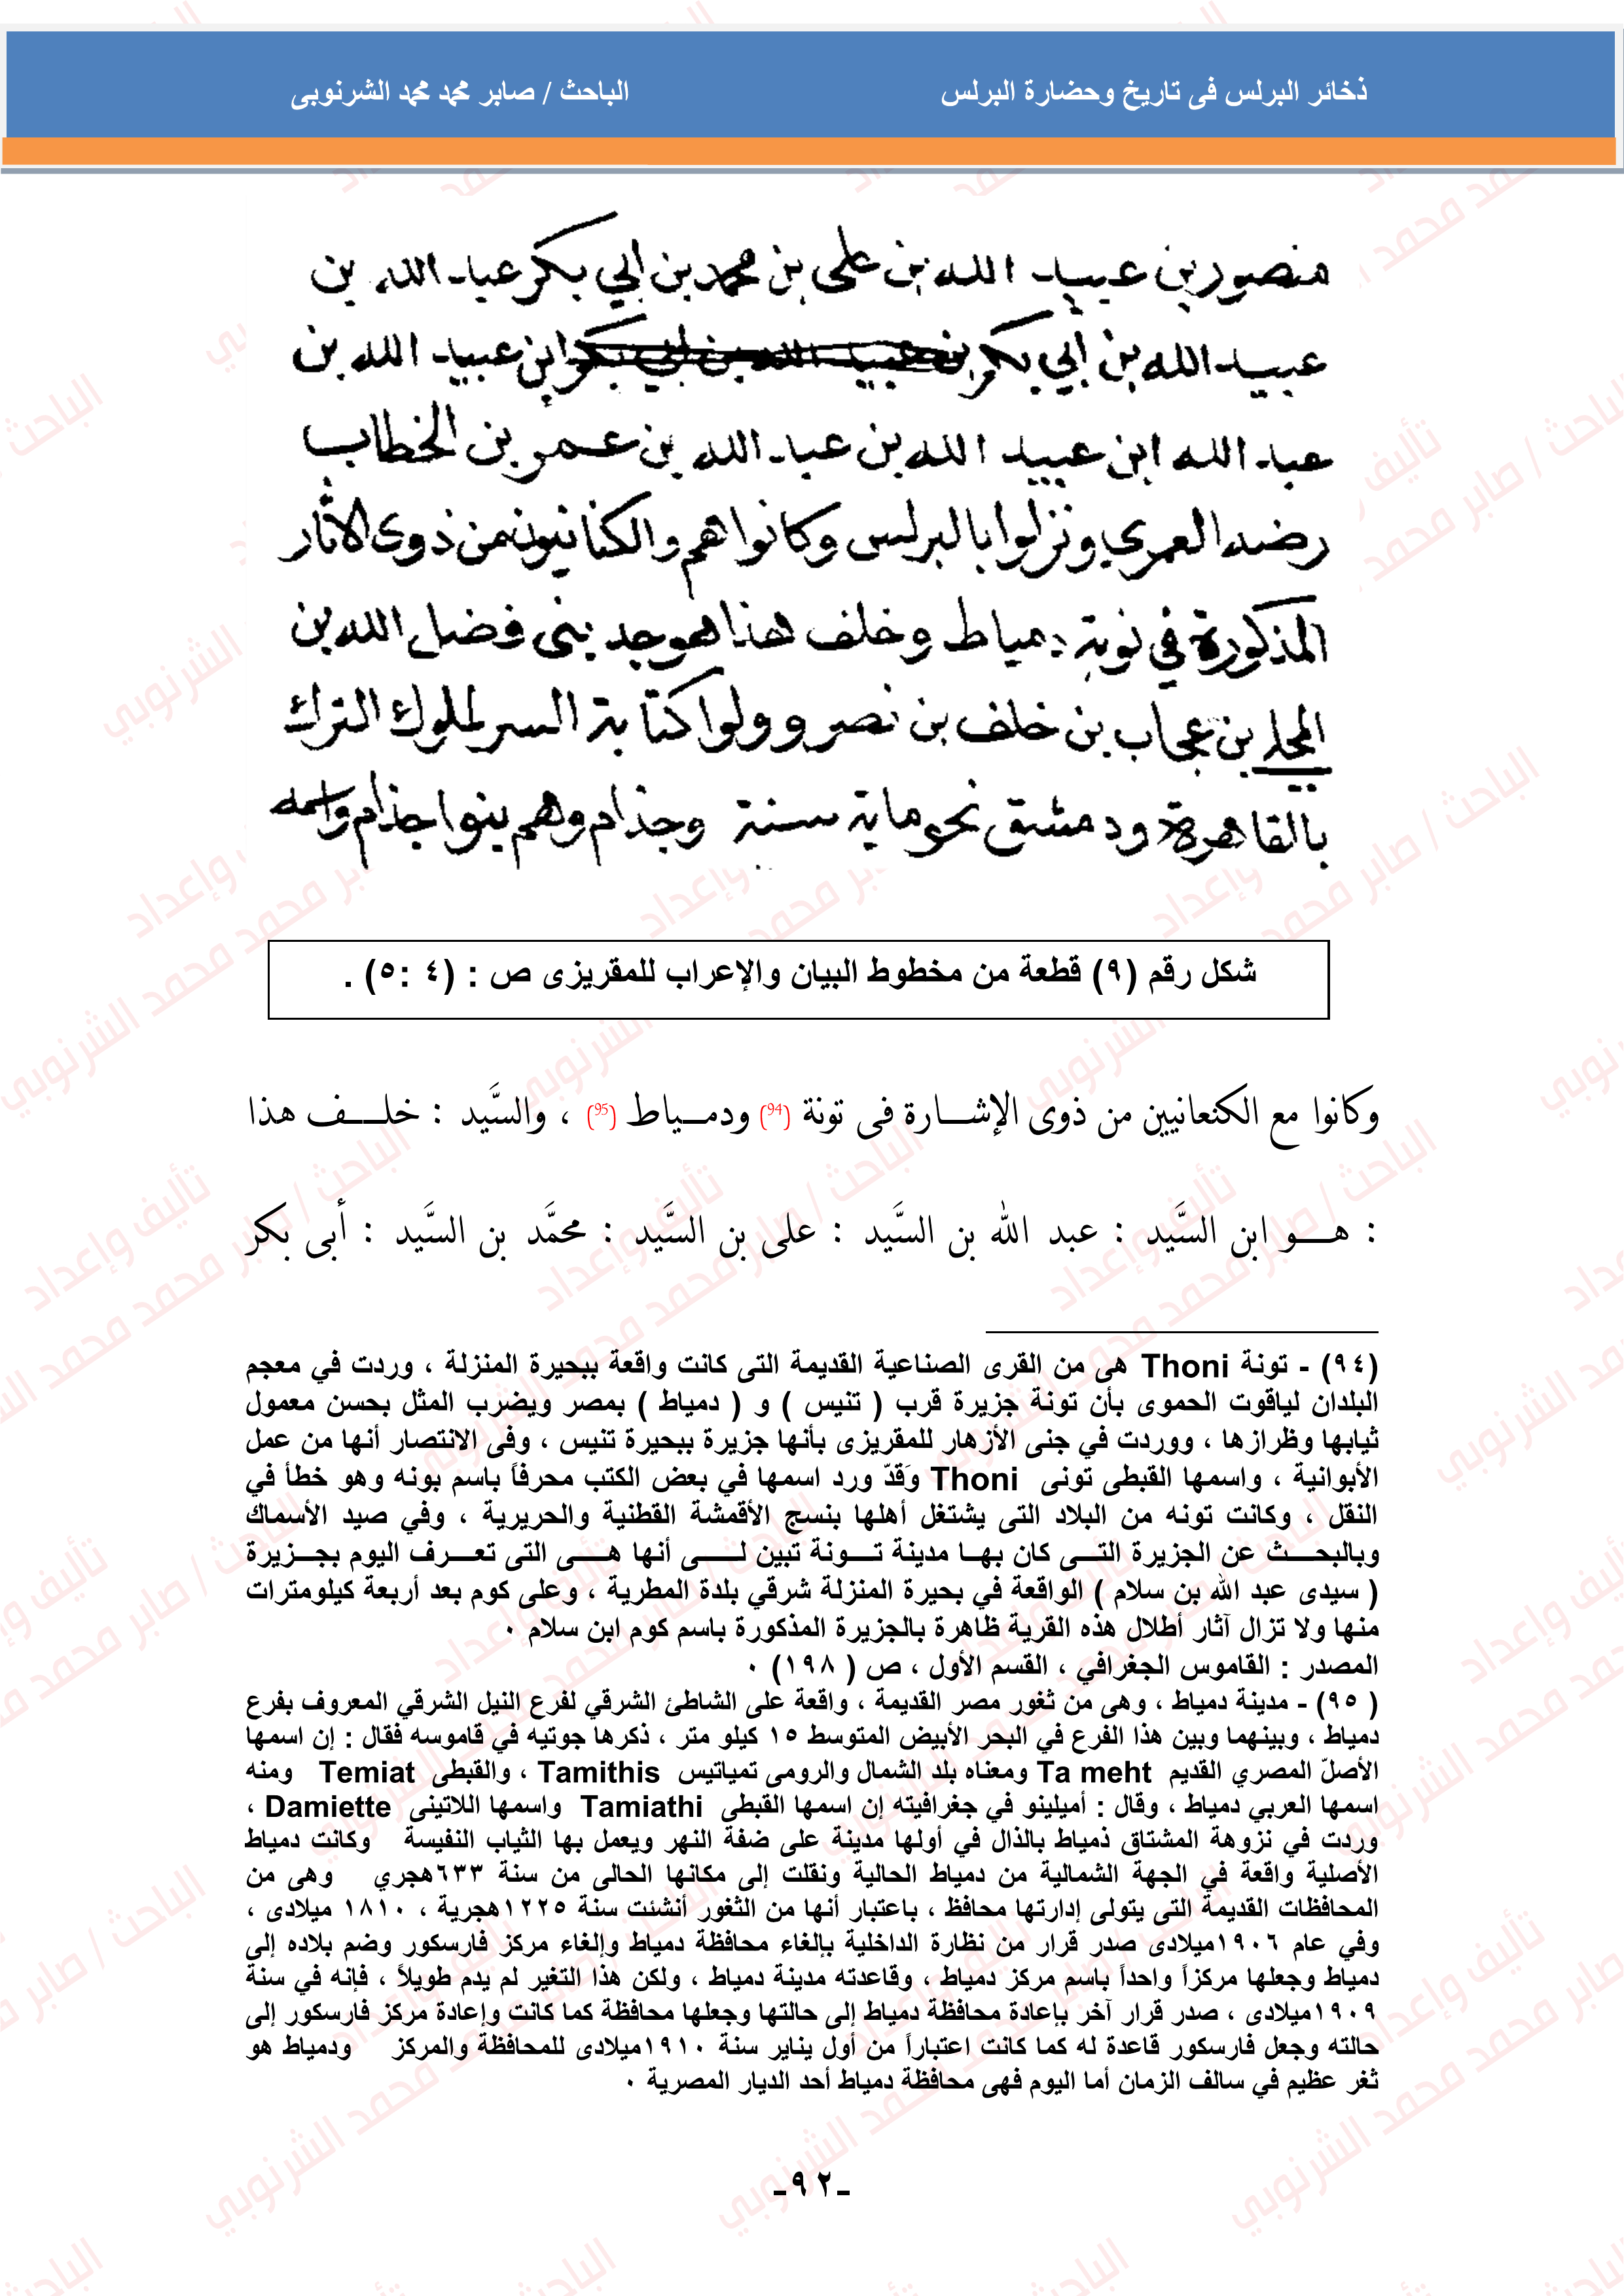 ذخائر البرلس فى تاريخ وحضارة البرلس
الباحث / صابر محمد محمد الشرنوبى
منصور بن عبيد الله بن على بن محمد بن ابي بكر عبد الله بن
عبيد الله بن ابي بكر بن عبيد الله بن ابي بكر ابن عبيد الله بن
عبد الله ابن عبيد الله بن عبد الله بن عمر بن الخطاب
رضه العمري ونزلوا بالبرلس وكانوا هم والكنانيون من ذوى الاثار
المذكورة في نوبة دمياط وخلف هذا هو جد بنى فضل الله بن
المجلد بن عجاب بن خلف بن نصر وولوا كتابة السر لملوك الترك
بالقاهرة ودمشق نحو ماية سنة وجذام وهم بنوا جذام واسمه
شكل رقم (٩) قطعة من مخطوط البيان والإعراب للمقريزى ص : (٤ :٥) .
وكانوا مع الكنعانيين من ذوى الإشـــارة فى تونة (94) ودمـــياط (95) ، والسَّيد : خلـــف هذا
: هـــو ابن السَّيد : عبد الله بن السَّيد : على بن السَّيد : محمَّد بن السَّيد : أبى بكر
(٩٤) - تونة Thoni هى من القرى الصناعية القديمة التى كانت واقعة ببحيرة المنزلة ، وردت في معجم
البلدان لياقوت الحموى بأن تونة جزيرة قرب ( تنيس ) و ( دمياط ) بمصر ويضرب المثل بحسن معمول
ثيابها وظرازها ، ووردت في جنى الأزهار للمقريزى بأنها جزيرة ببحيرة تنيس ، وفى الانتصار أنها من عمل
الأبوانية ، واسمها القبطى تونى Thoni وَقدّ ورد اسمها في بعض الكتب محرفاً باسم بونه وهو خطأ في
النقل ، وكانت تونه من البلاد التى يشتغل أهلها بنسج الأقمشة القطنية والحريرية ، وفي صيد الأسماك
وبالبحـــث عن الجزيرة التـــى كان بهـــا مدينة تـــونة تبين لـــــى أنها هـــــى التى تعـــرف اليوم بجـــزيرة
( سيدى عبد الله بن سلام ) الواقعة في بحيرة المنزلة شرقي بلدة المطرية ، وعلى كوم بعد أربعة كيلومترات
منها ولا تزال آثار أطلال هذه القرية ظاهرة بالجزيرة المذكورة باسم كوم ابن سلام ٠
المصدر : القاموس الجغرافي ، القسم الأول ، ص ( ١٩٨) ٠
( ٩٥) - مدينة دمياط ، وهى من ثغور مصر القديمة ، واقعة على الشاطئ الشرقي لفرع النيل الشرقي المعروف بفرع
دمياط ، وبينهما وبين هذا الفرع في البحر الأبيض المتوسط ١٥ كيلو متر ، ذكرها جوتيه في قاموسه فقال : إن اسمها
الأصلّ المصري القديم Ta meht ومعناه بلد الشمال والرومى تمياتيس Tamithis ، والقبطى Temiat ومنه
اسمها العربي دمياط ، وقال : أميلينو في جغرافيته إن اسمها القبطى Tamiathi واسمها اللاتينى Damiette ،
وردت في نزوهة المشتاق ذمياط بالذال في أولها مدينة على ضفة النهر ويعمل بها الثياب النفيسة وكانت دمياط
الأصلية واقعة في الجهة الشمالية من دمياط الحالية ونقلت إلى مكانها الحالى من سنة ٦٣٣هجري وهى من
المحافظات القديمة التى يتولى إدارتها محافظ ، باعتبار أنها من الثغور أنشئت سنة ١٢٢٥هجرية ، ١٨١٠ ميلادى ،
وفي عام ١٩٠٦ميلادى صدر قرار من نظارة الداخلية بإلغاء محافظة دمياط وإلغاء مركز فارسكور وضم بلاده إلى
دمياط وجعلها مركزاً واحداً باسم مركز دمياط ، وقاعدته مدينة دمياط ، ولكن هذا التغير لم يدم طويلاً ، فإنه في سنة
١٩٠٩ميلادى ، صدر قرار آخر بإعادة محافظة دمياط إلى حالتها وجعلها محافظة كما كانت وإعادة مركز فارسكور إلى
حالته وجعل فارسكور قاعدة له كما كانت اعتباراً من أول يناير سنة ١٩١٠ميلادى للمحافظة والمركز ودمياط هو
ثغر عظيم في سالف الزمان أما اليوم فهى محافظة دمياط أحد الديار المصرية ٠
-٩٢-